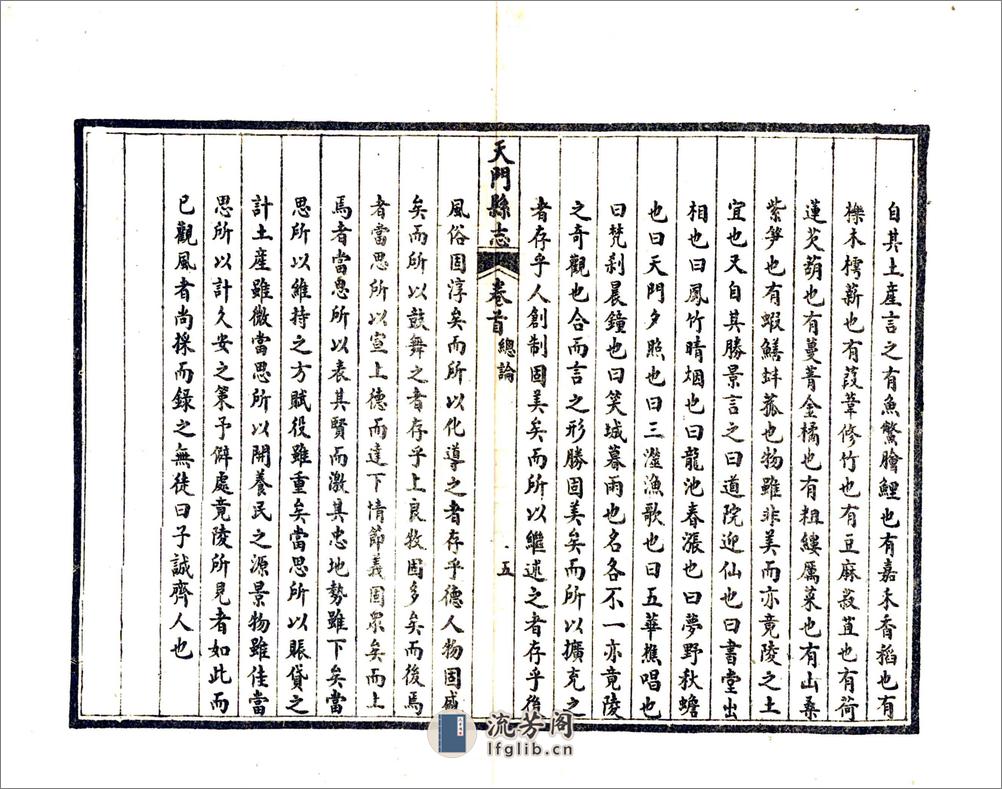 自其土產言之有魚鱉膾鯉也有嘉禾香稻也有
櫟木樗薪也有葭葦修竹也有豆麻菽苴也有荷
蓮芡葫也有蔓菁金橘也有粗縷厲菜也有山桑
紫笋也有蝦鱔蚌菰也物雖非美而亦竟陵之土
宜也又自其勝景言之曰道院迎仙也曰書堂出
相也曰鳳竹晴烟也曰龍池春漲也曰夢野秋蟾
也曰天門夕照也曰三澨漁歌也曰五華樵唱也
曰梵刹晨鐘也曰笑城暮雨也名各不一亦竟陵
之奇觀也合而言之形勝固美矣而所以擴充之
者存乎人創制固美矣而所以繼述之者存乎後
天門縣志 卷首 總論 五
風俗固淳矣而所以化導之者存乎德人物固盛
矣而所以鼓舞之者存乎上良牧固多矣而後焉
者當思所以宣上德而達下情節義固眾矣而上
焉者當思所以表其賢而激其忠地勢雖下矣當
思所以維持之方賦役雖重矣當思所以賑貸之
計土產雖微當思所以開養民之源景物雖佳當
思所以計久安之策予僻處竟陵所見者如此而
已觀風者尚採而錄之無徒曰子誠齊人也
流芳阁
lfglib.cn